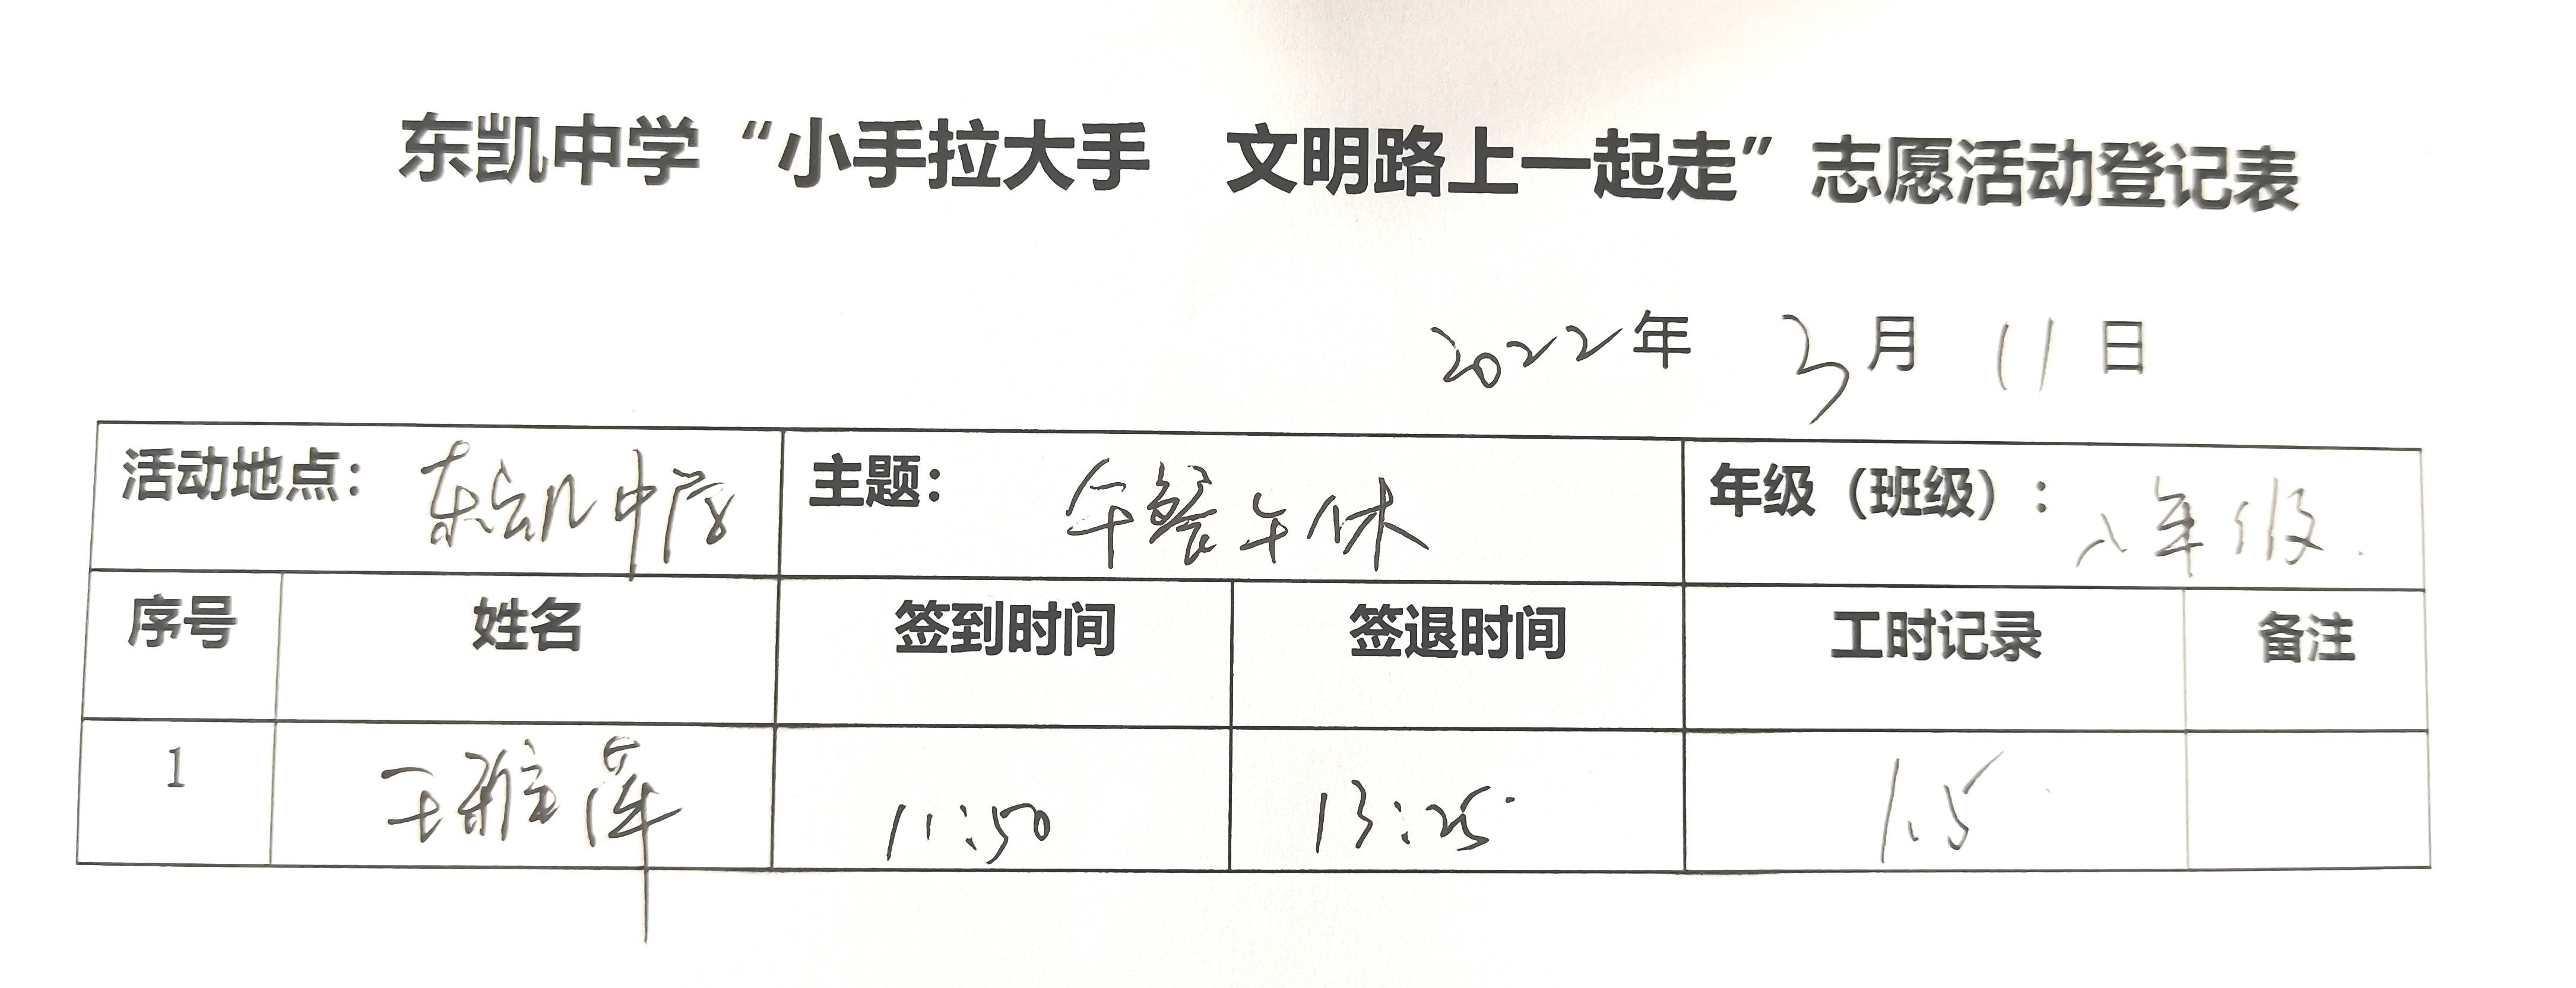 东凯中学“小手拉大手 文明路上一起走”志愿活动登记表
2022年 3月 11日
活动地点： 东凯中学 主题： 午餐午休 年级（班级）： 八年级.
序号 姓名 签到时间 签退时间 工时记录 备注
1 王雅萍 11:50 13:25 1.5